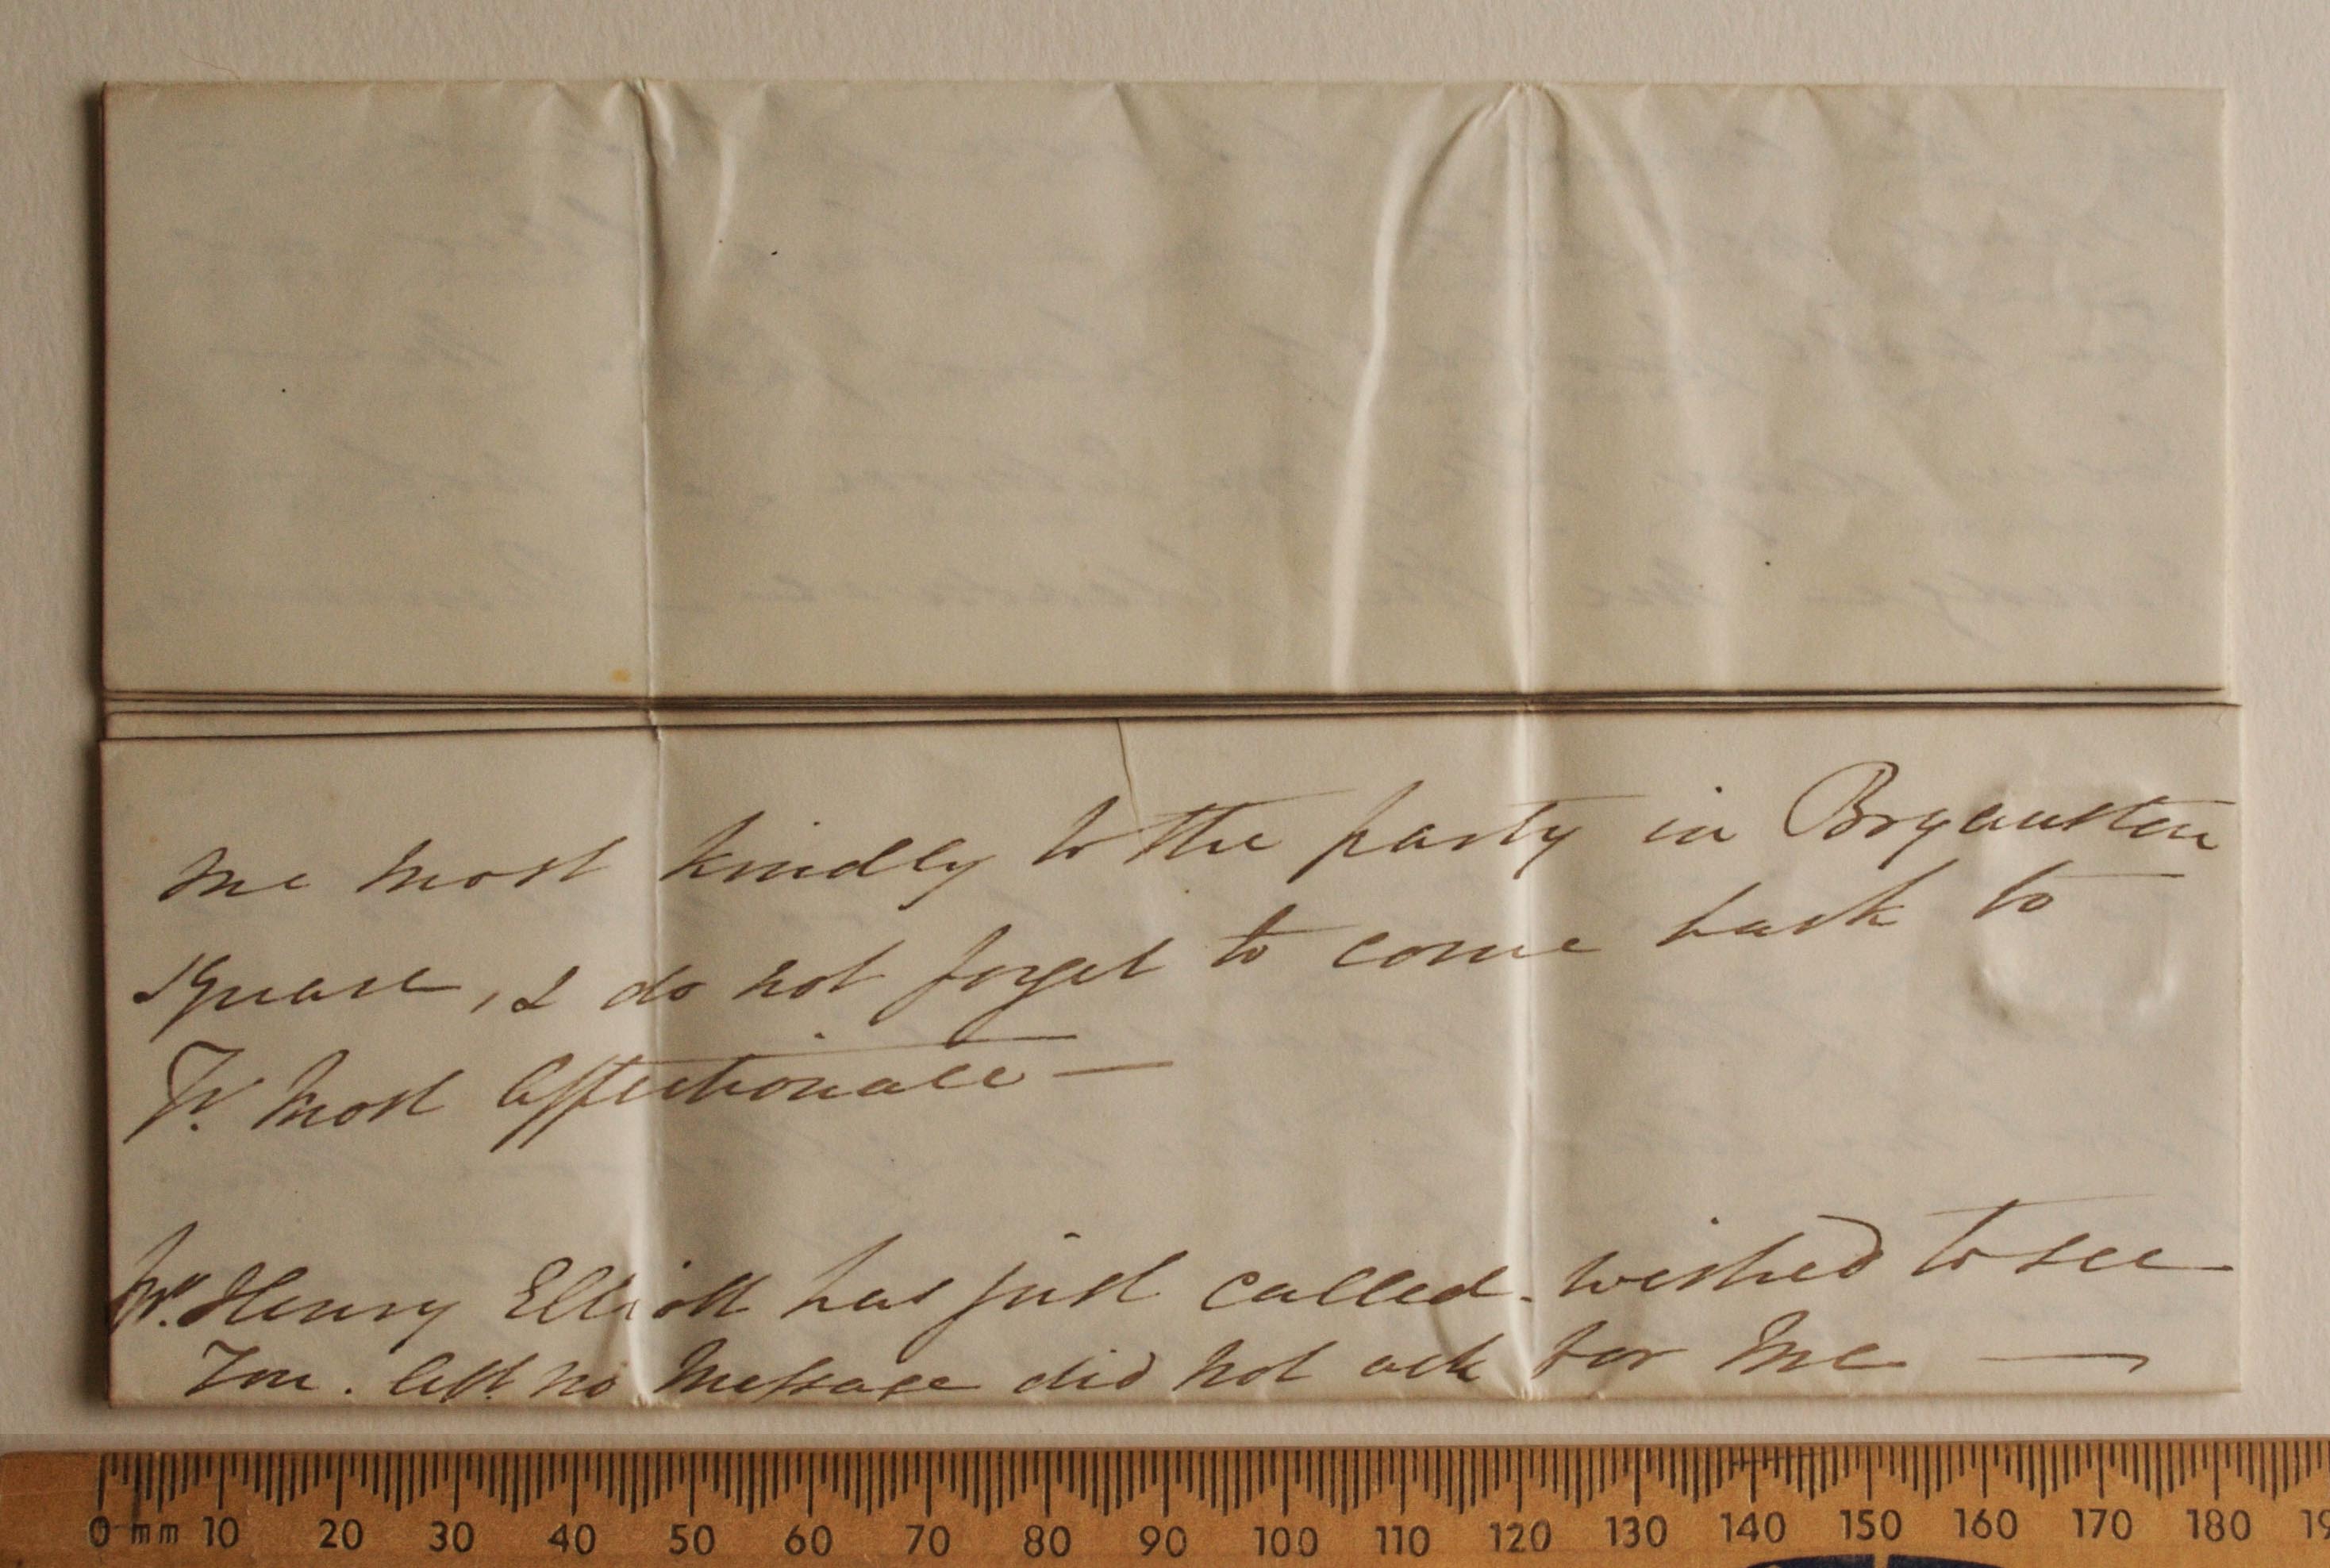 me most kindly to the party in Bryanston
Square, & do not forget to come back to
Yr. most affectionate —
Mr. Henry Elliott has just called. wished to see
You. left no message did not ask for me —
0 mm 10 20 30 40 50 60 70 80 90 100 110 120 130 140 150 160 170 180 19